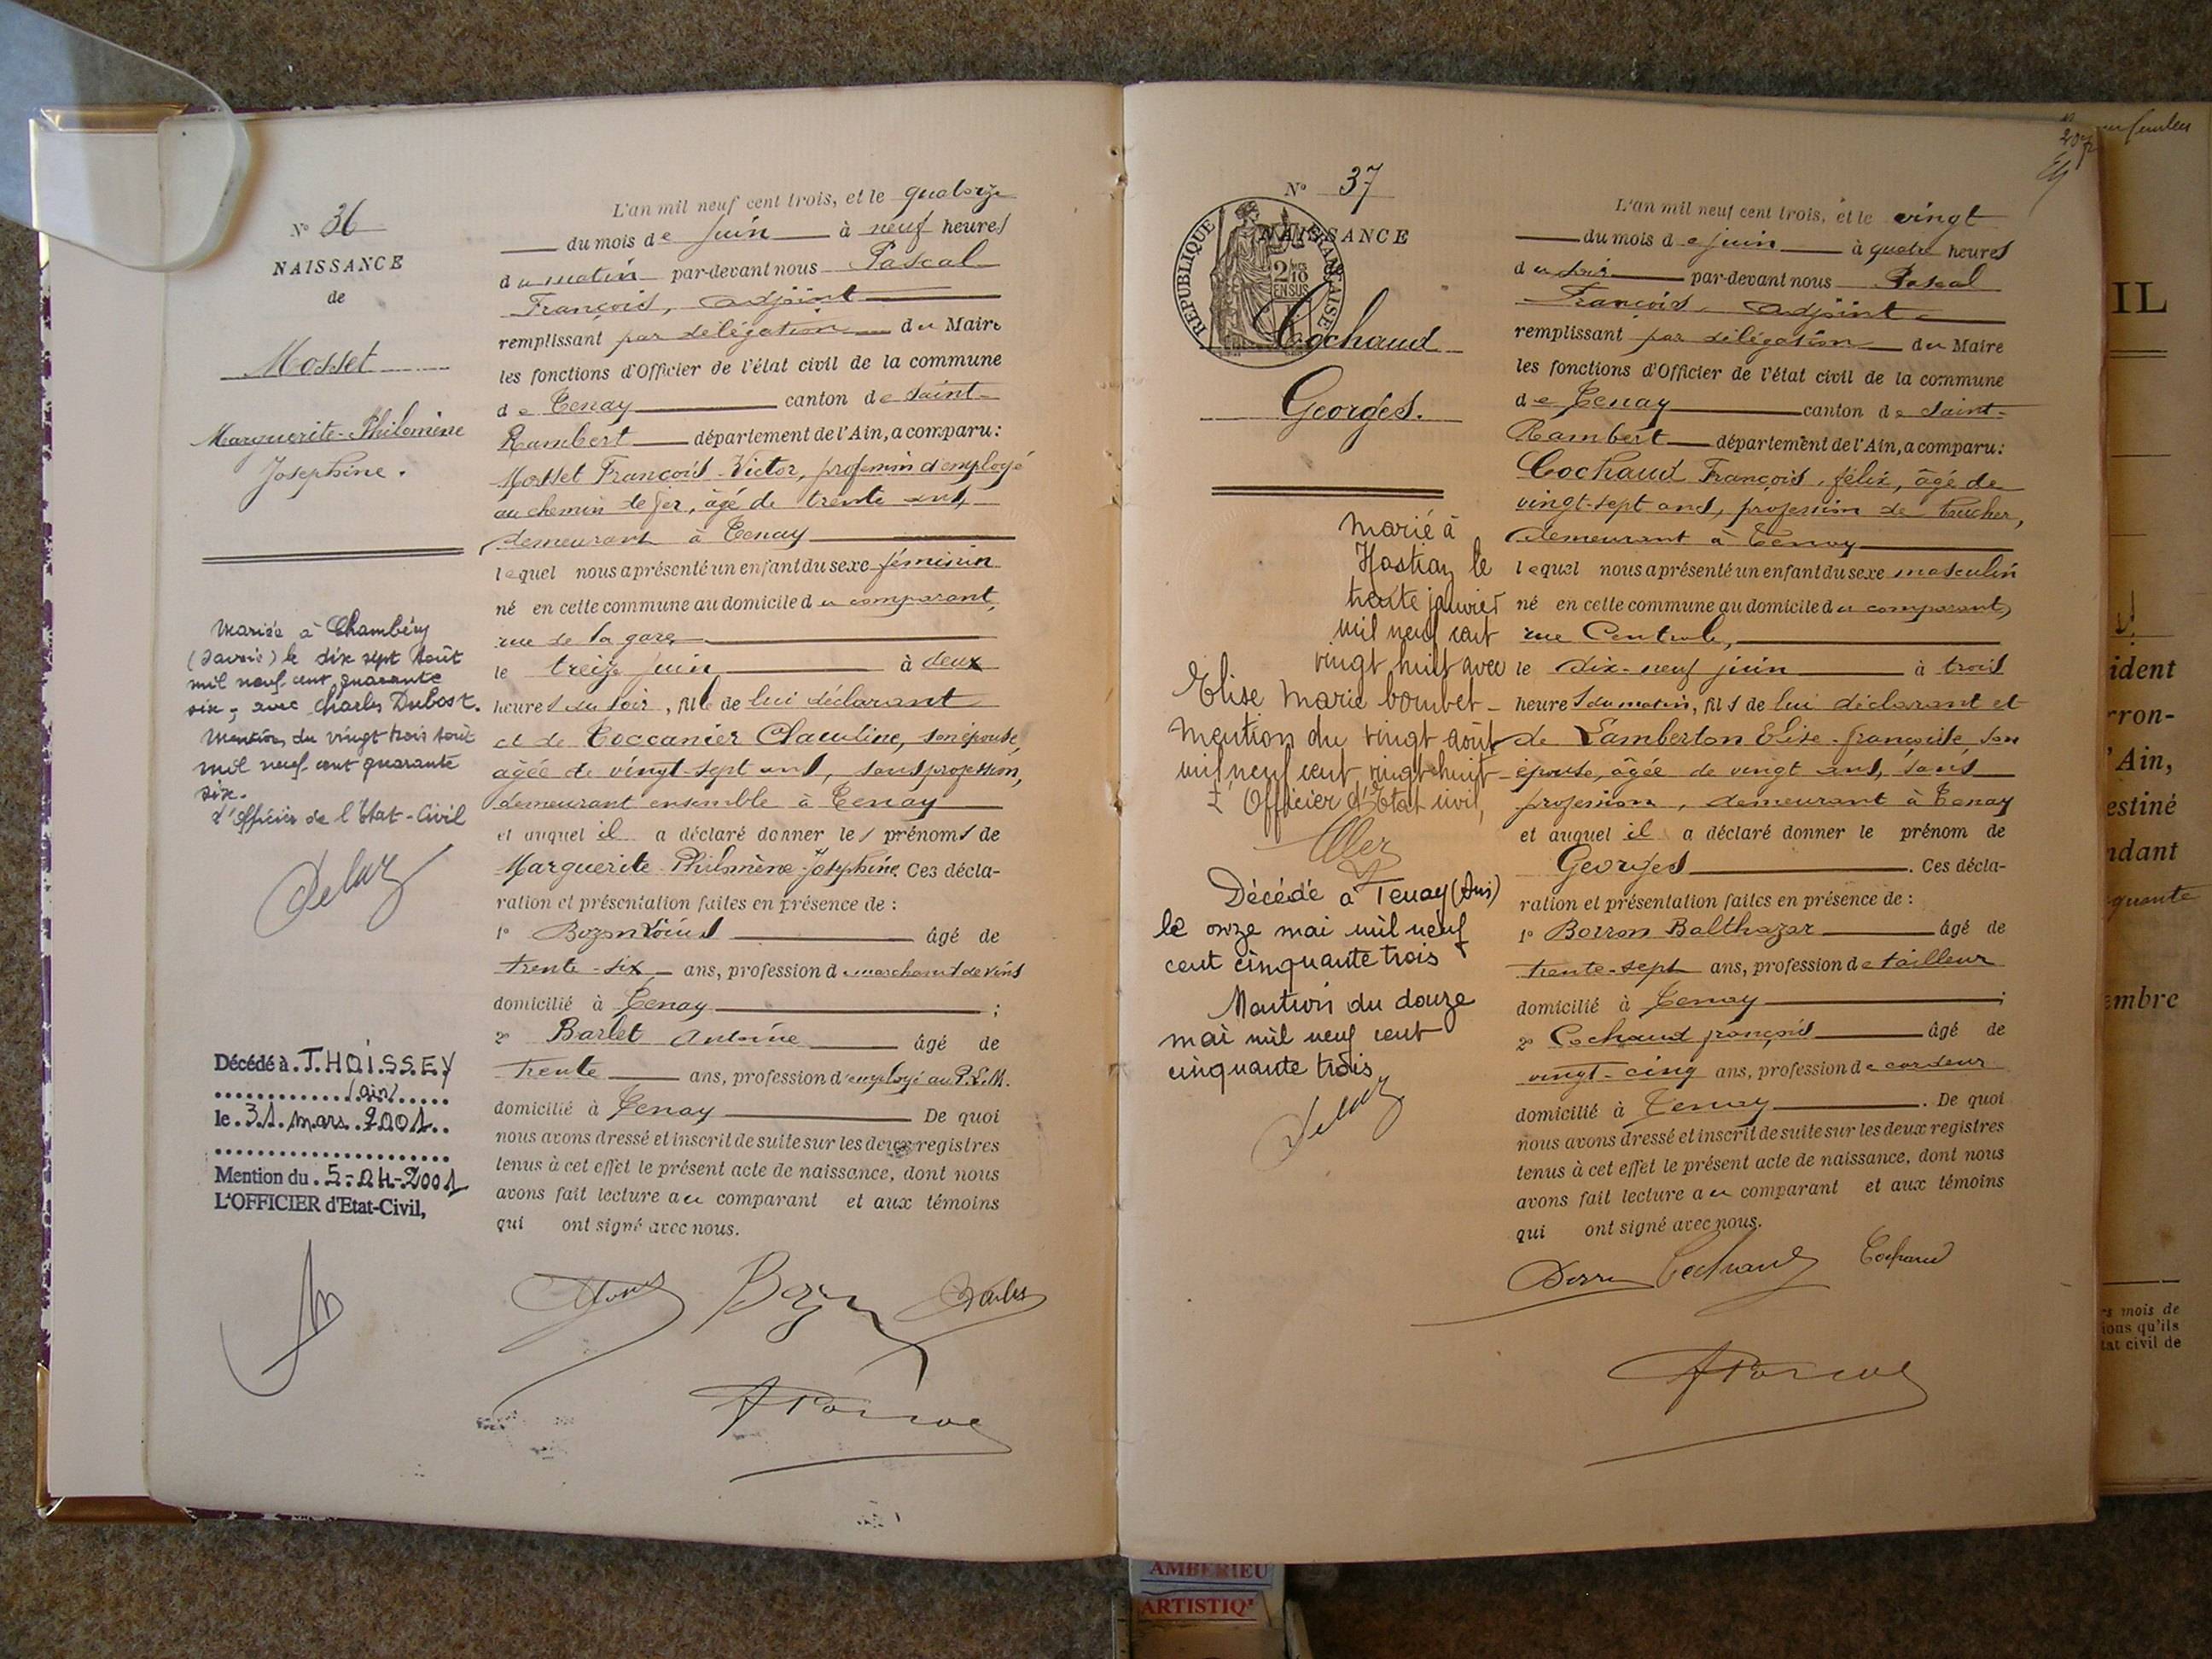 N° 36
NAISSANCE
de
Mosset
Marguerite-Philomène
Josephine.
Mariée à Chambéry
(Savoie) le dix sept août
mil neuf cent quarante
six, avec Charles Dubost.
Mention du vingt trois août
mil neuf cent quarante
six.
L'officier de l'Etat-Civil
Delaz
Décédé à THOISSEY
(ain)
le 31 mars 2001
Mention du 5-04-2001
L'OFFICIER d'Etat-Civil,
L'an mil neuf cent trois, et le quatorze
du mois de juin à neuf heures
du matin par-devant nous Pascal
François, adjoint
remplissant par délégation du Maire
les fonctions d'Officier de l'état civil de la commune
de Tenay canton de Saint-
Rambert département de l'Ain, a comparu:
Mosset François-Victor, profession d'employé
au chemin de fer, âgé de trente ans,
demeurant à Tenay
lequel nous a présenté un enfant du sexe féminin
né en cette commune au domicile du comparant,
rue de la gare,
le treize juin à deux
heures du soir, fille de lui déclarant
et de Toccanier Claudine, son épouse,
agée de vingt-sept ans, sans profession,
demeurant ensemble à Tenay
et auquel il a déclaré donner les prénoms de
Marguerite-Philomène-Joséphine. Ces décla-
ration et présentation faites en présence de :
1° Bozon Louis âgé de
trente-six ans, profession de marchand de vins
domicilié à Tenay ;
2° Barlet Antoine âgé de
trente ans, profession d'employé au P.L.M.
domicilié à Tenay De quoi
nous avons dressé et inscrit de suite sur les deux registres
tenus à cet effet le présent acte de naissance, dont nous
avons fait lecture au comparant et aux témoins
qui ont signé avec nous.
Bozon Barlet
F Pascal
N° 37
NAISSANCE
REPUBLIQUE FRANÇAISE
2/10 EN SUS
Cochaud
Georges.
Marié à
Hostiaz le
trente janvier
mil neuf cent
vingt huit avec
Elise Marie
Mention du vingt août
mil neuf cent vingt huit
L'Officier d'Etat civil,
Décédé à Tenay (Ain)
le onze mai mil neuf
cent cinquante trois
Mention du douze
mai mil neuf cent
cinquante trois
Delaz
L'an mil neuf cent trois, et le vingt
du mois de juin à quatre heures
du soir par-devant nous Pascal
François, adjoint
remplissant par délégation du Maire
les fonctions d'Officier de l'état civil de la commune
de Tenay canton de Saint-
Rambert département de l'Ain, a comparu:
Cochaud François, félix, âgé de
vingt-sept ans, profession de boucher,
demeurant à Tenay
lequel nous a présenté un enfant du sexe masculin
né en cette commune au domicile du comparant,
rue Centrale,
le dix-neuf juin à trois
heures du matin, fils de lui déclarant et
de Lamberton Elise-françoise, son
épouse, âgée de vingt ans, sans
profession, demeurant à Tenay
et auquel il a déclaré donner le prénom de
Georges. Ces décla-
ration et présentation faites en présence de :
1° Borron Balthazar âgé de
trente-sept ans, profession de tailleur
domicilié à Tenay ;
2° Cochaud françois âgé de
vingt-cinq ans, profession de cardeur
domicilié à Tenay. De quoi
nous avons dressé et inscrit de suite sur les deux registres
tenus à cet effet le présent acte de naissance, dont nous
avons fait lecture au comparant et aux témoins
qui ont signé avec nous.
Cochaud Cochaud
F Pascal
IL
ident
rron-
'Ain,
estiné
ndant
embre
rs mois de
ions qu'ils
tat civil de
AMBERIEU
ARTISTIQ'